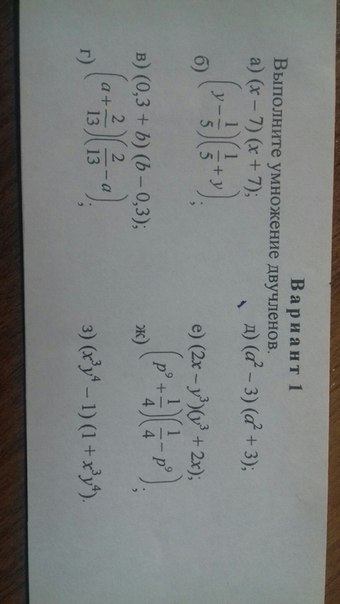 Вариант 1
Выполните умножение двучленов.
а) (x − 7) (x + 7);
б) (y − 1/5)(1/5 + y);
в) (0,3 + b) (b − 0,3);
г) (a + 2/13)(2/13 − a);
д) (a² − 3) (a² + 3);
е) (2x − y³)(y³ + 2x);
ж) (p⁹ + 1/4)(1/4 − p⁹);
з) (x³y⁴ − 1) (1 + x³y⁴).